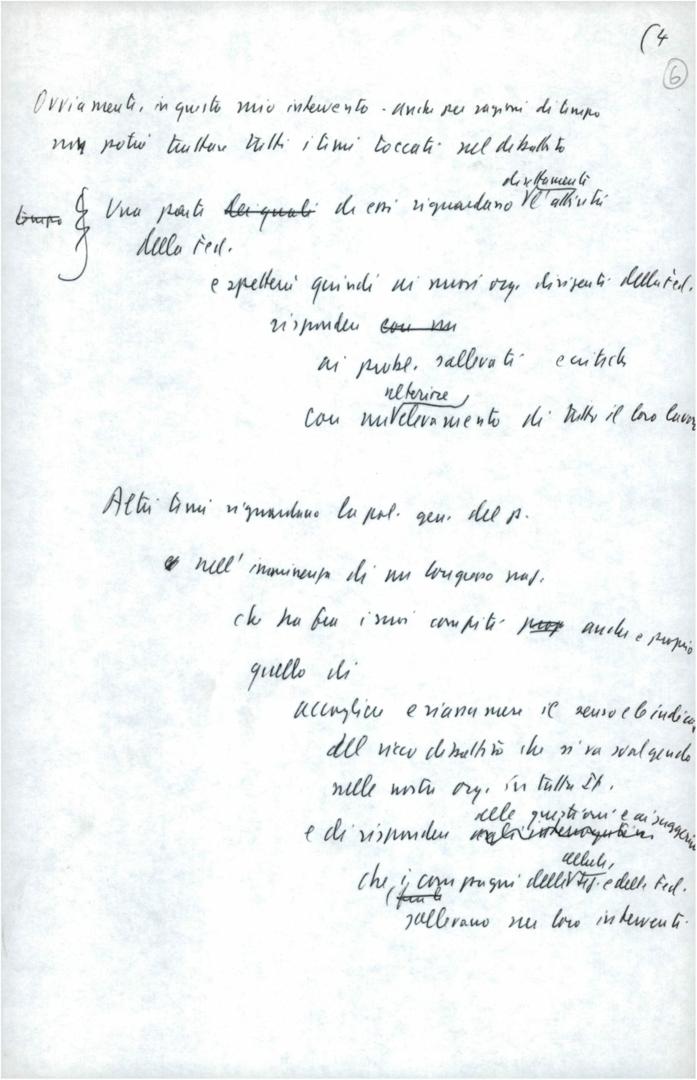 (4
6
Ovviamente, in questo mio intervento - anche per ragioni di tempo
non potrò trattare tutti i temi toccati nel dibattito
direttamente
tempo Una parte dei quali di essi riguardano l'attività
della Fed.
e spetterà quindi ai nuovi org. dirigenti della Fed.
rispondere con un
ai probl. sollevati e critiche
ulteriore
con un elevamento di tutto il loro lavoro
Altri temi riguardano la pol. gen. del p.
nell'imminenza di un Congresso naz.
che ha fra i suoi compiti anche e proprio
quello di
accogliere e riassumere il senso e le indica
del ricco dibattito che si va svolgendo
nelle nostre org. in tutta It.
alle questioni e ai suggerim
e di rispondere agli interrogativi
delle cellule,
che i compagni delle sez. e delle Fed.
sollevano nei loro interventi.